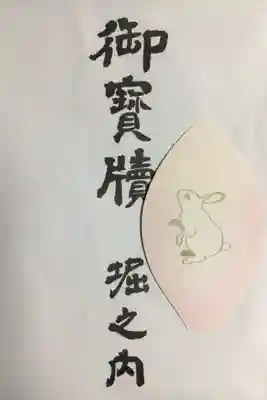 御寶牘 堀之内